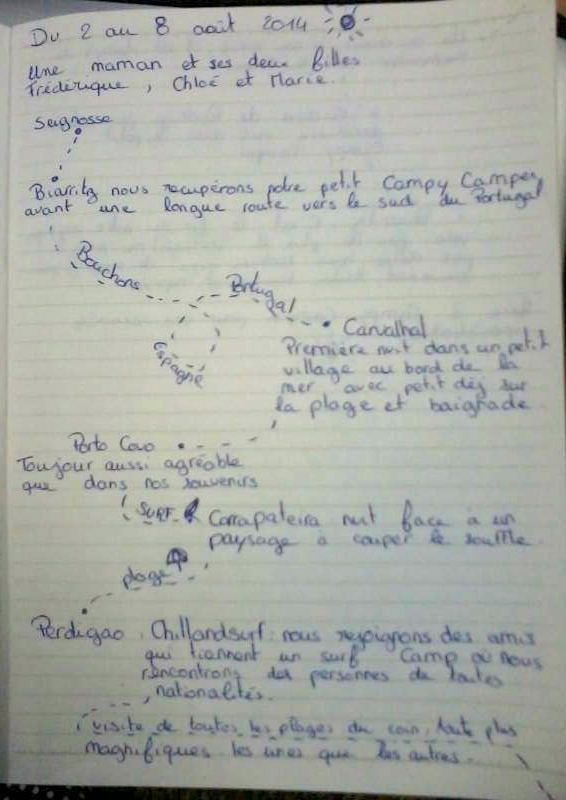 Du 2 au 8 août 2014
Une maman et ses deux filles
Frédérique, Chloé et Marie.
Seignosse
Biarritz nous récupérons notre petit Campy Camper
avant une longue route vers le sud du Portugal
Bouchons
Portugal
Espagne
Carvalhal
Première nuit dans un petit
village au bord de la
mer avec petit déj sur
la plage et baignade
Porto Covo
Toujour aussi agréable
que dans nos souvenirs
SURF
Carrapateira nuit face à un
paysage à couper le souffle
plage
Perdigao : Chillandsurf : nous rejoignons des amis
qui tiennent un surf Camp où nous
rencontrons des personnes de toutes
nationalités.
visite de toutes les plages du coin, toute plus
magnifiques les unes que les autres.